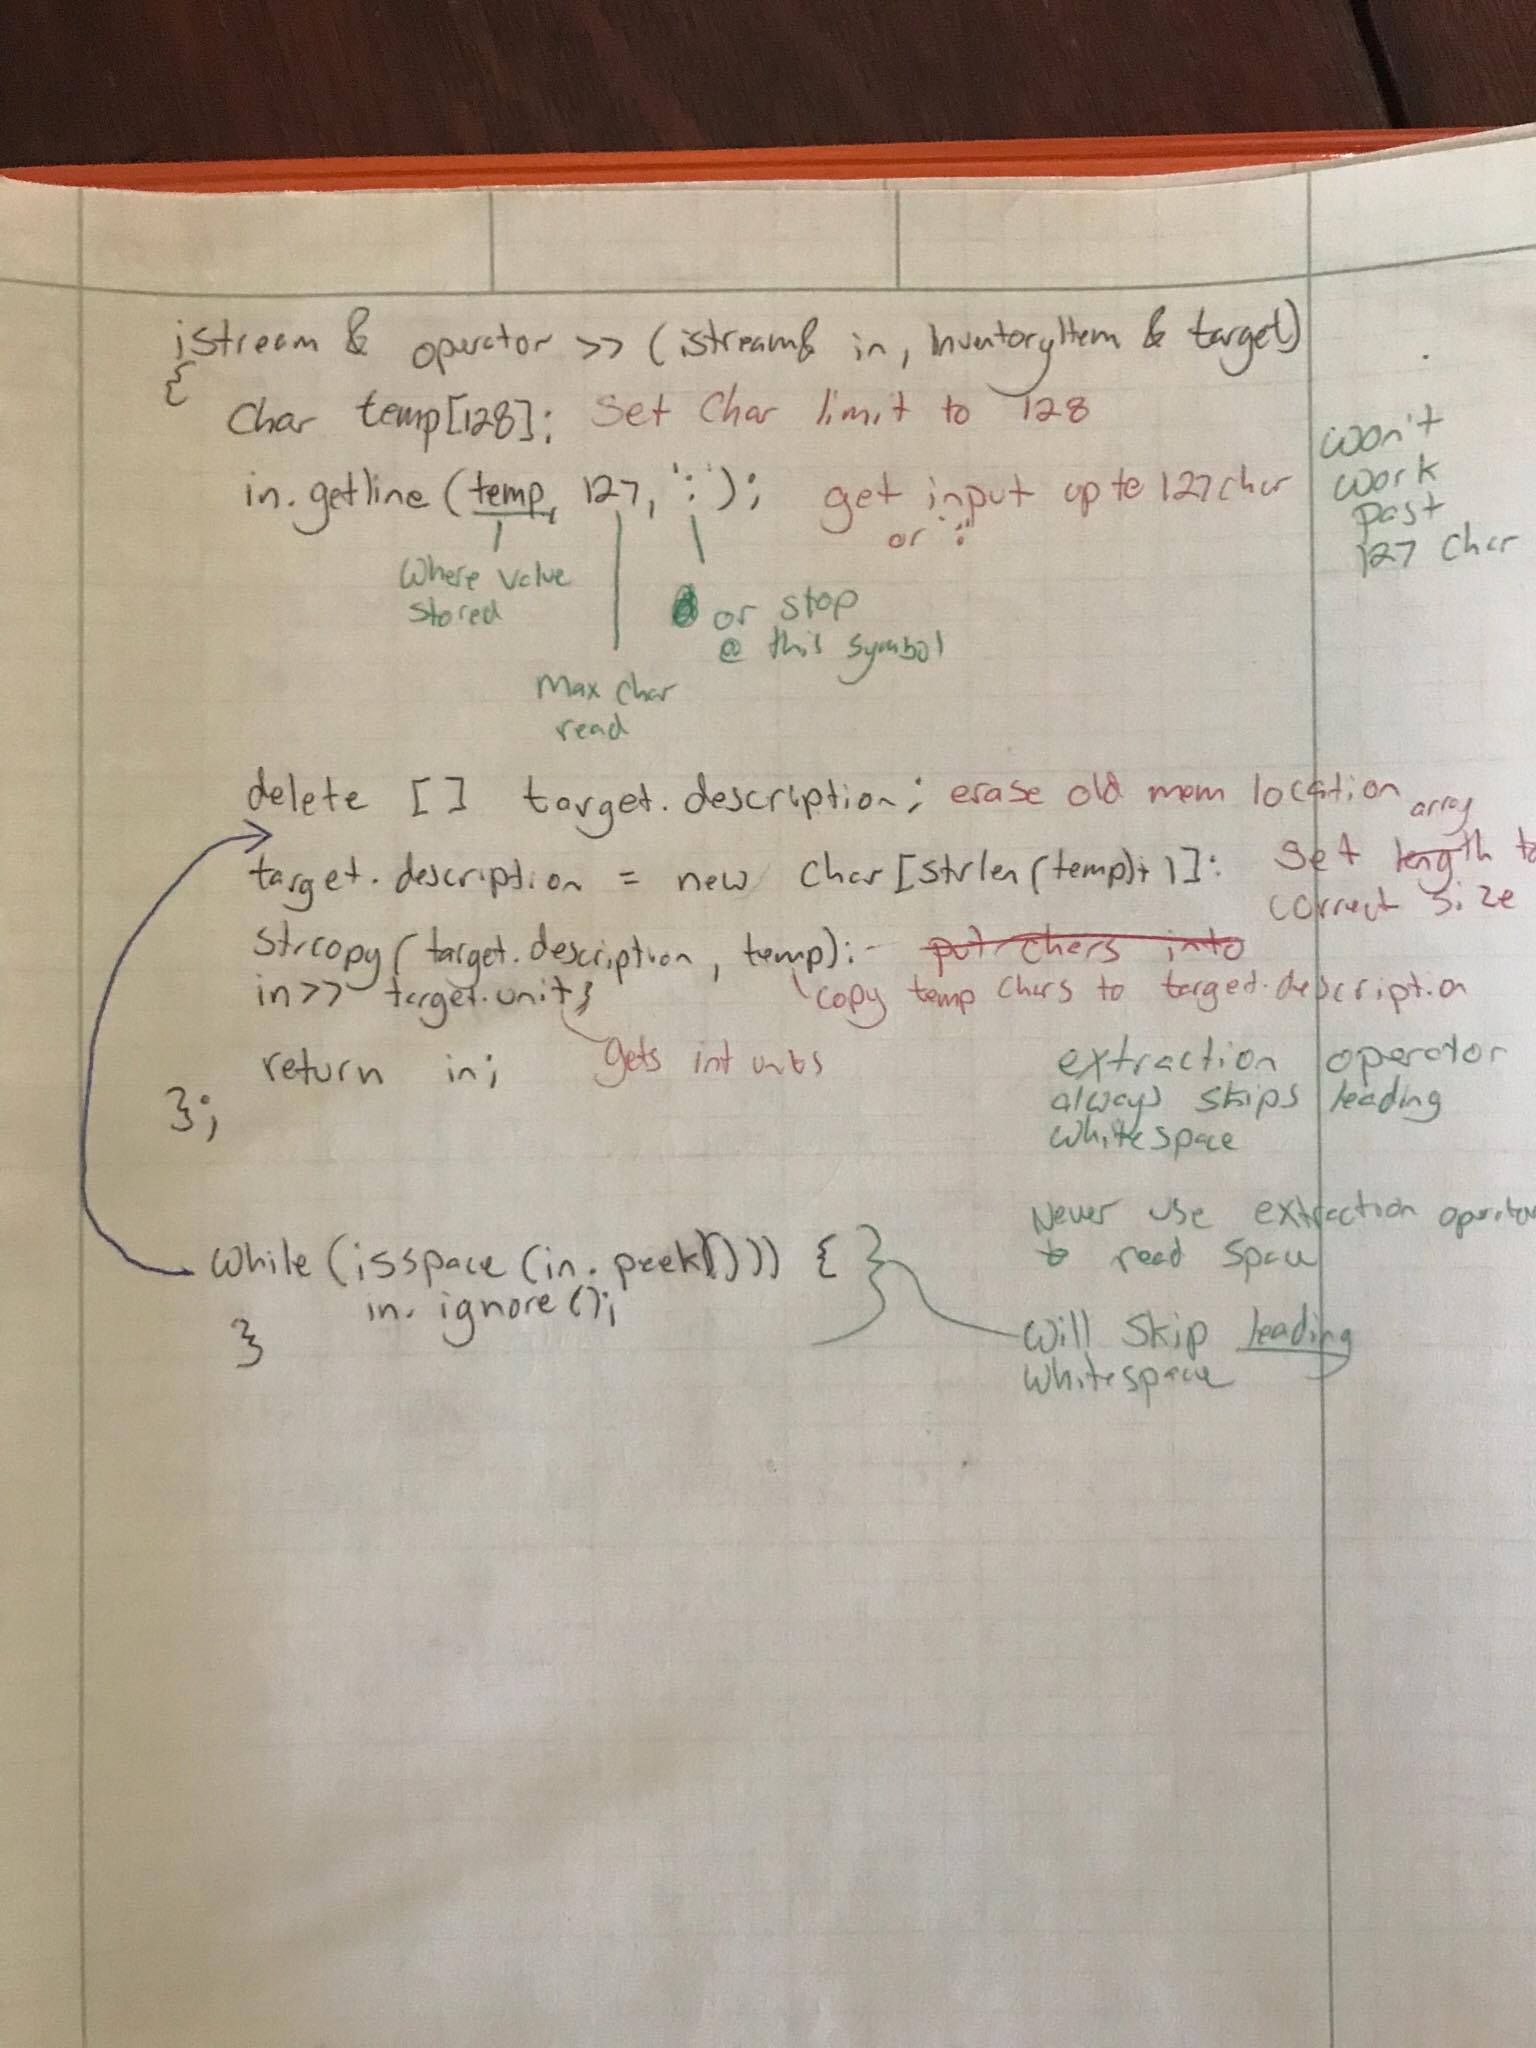 istream & operator >> (istream& in, InventoryItem & target)
{
char temp[128]; Set Char limit to 128
in.getline (temp, 127, ':'); get input up to 127 char
or ':'
won't
work
past
127 char
where value
stored
or stop
@ this symbol
Max char
read
delete [] target.description; erase old mem location
array
target.description = new char[strlen(temp)+1]: Set length to
correct size
strcopy(target.description, temp):- put chars into
copy temp chars to target.description
in>> target.unit;
gets int units
return in;
};
extraction operator
always skips leading
whitespace
Never use extraction operator
to read space
while (isspace (in.peek()))) {
in. ignore();
}
will skip leading
whitespace